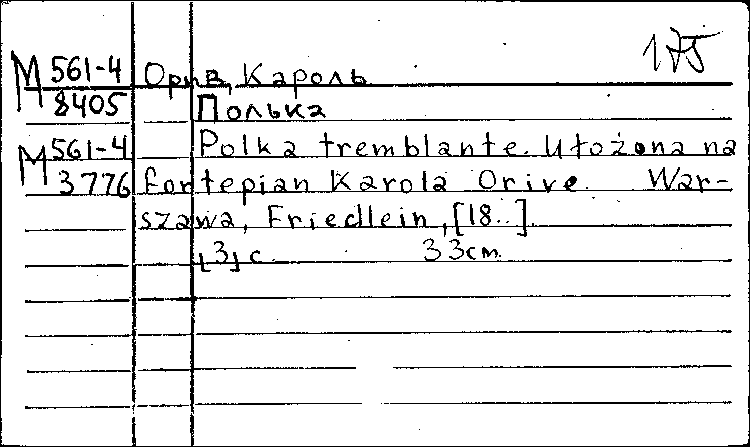 175
М 561-4 Орив, Кароль
8405 Полька
М 561-4 Polka tremblante. Ułożona na
3776 fortepian Karola Orive. War-
szawa, Friedlein, [18..].
[3] c. 33 cm.